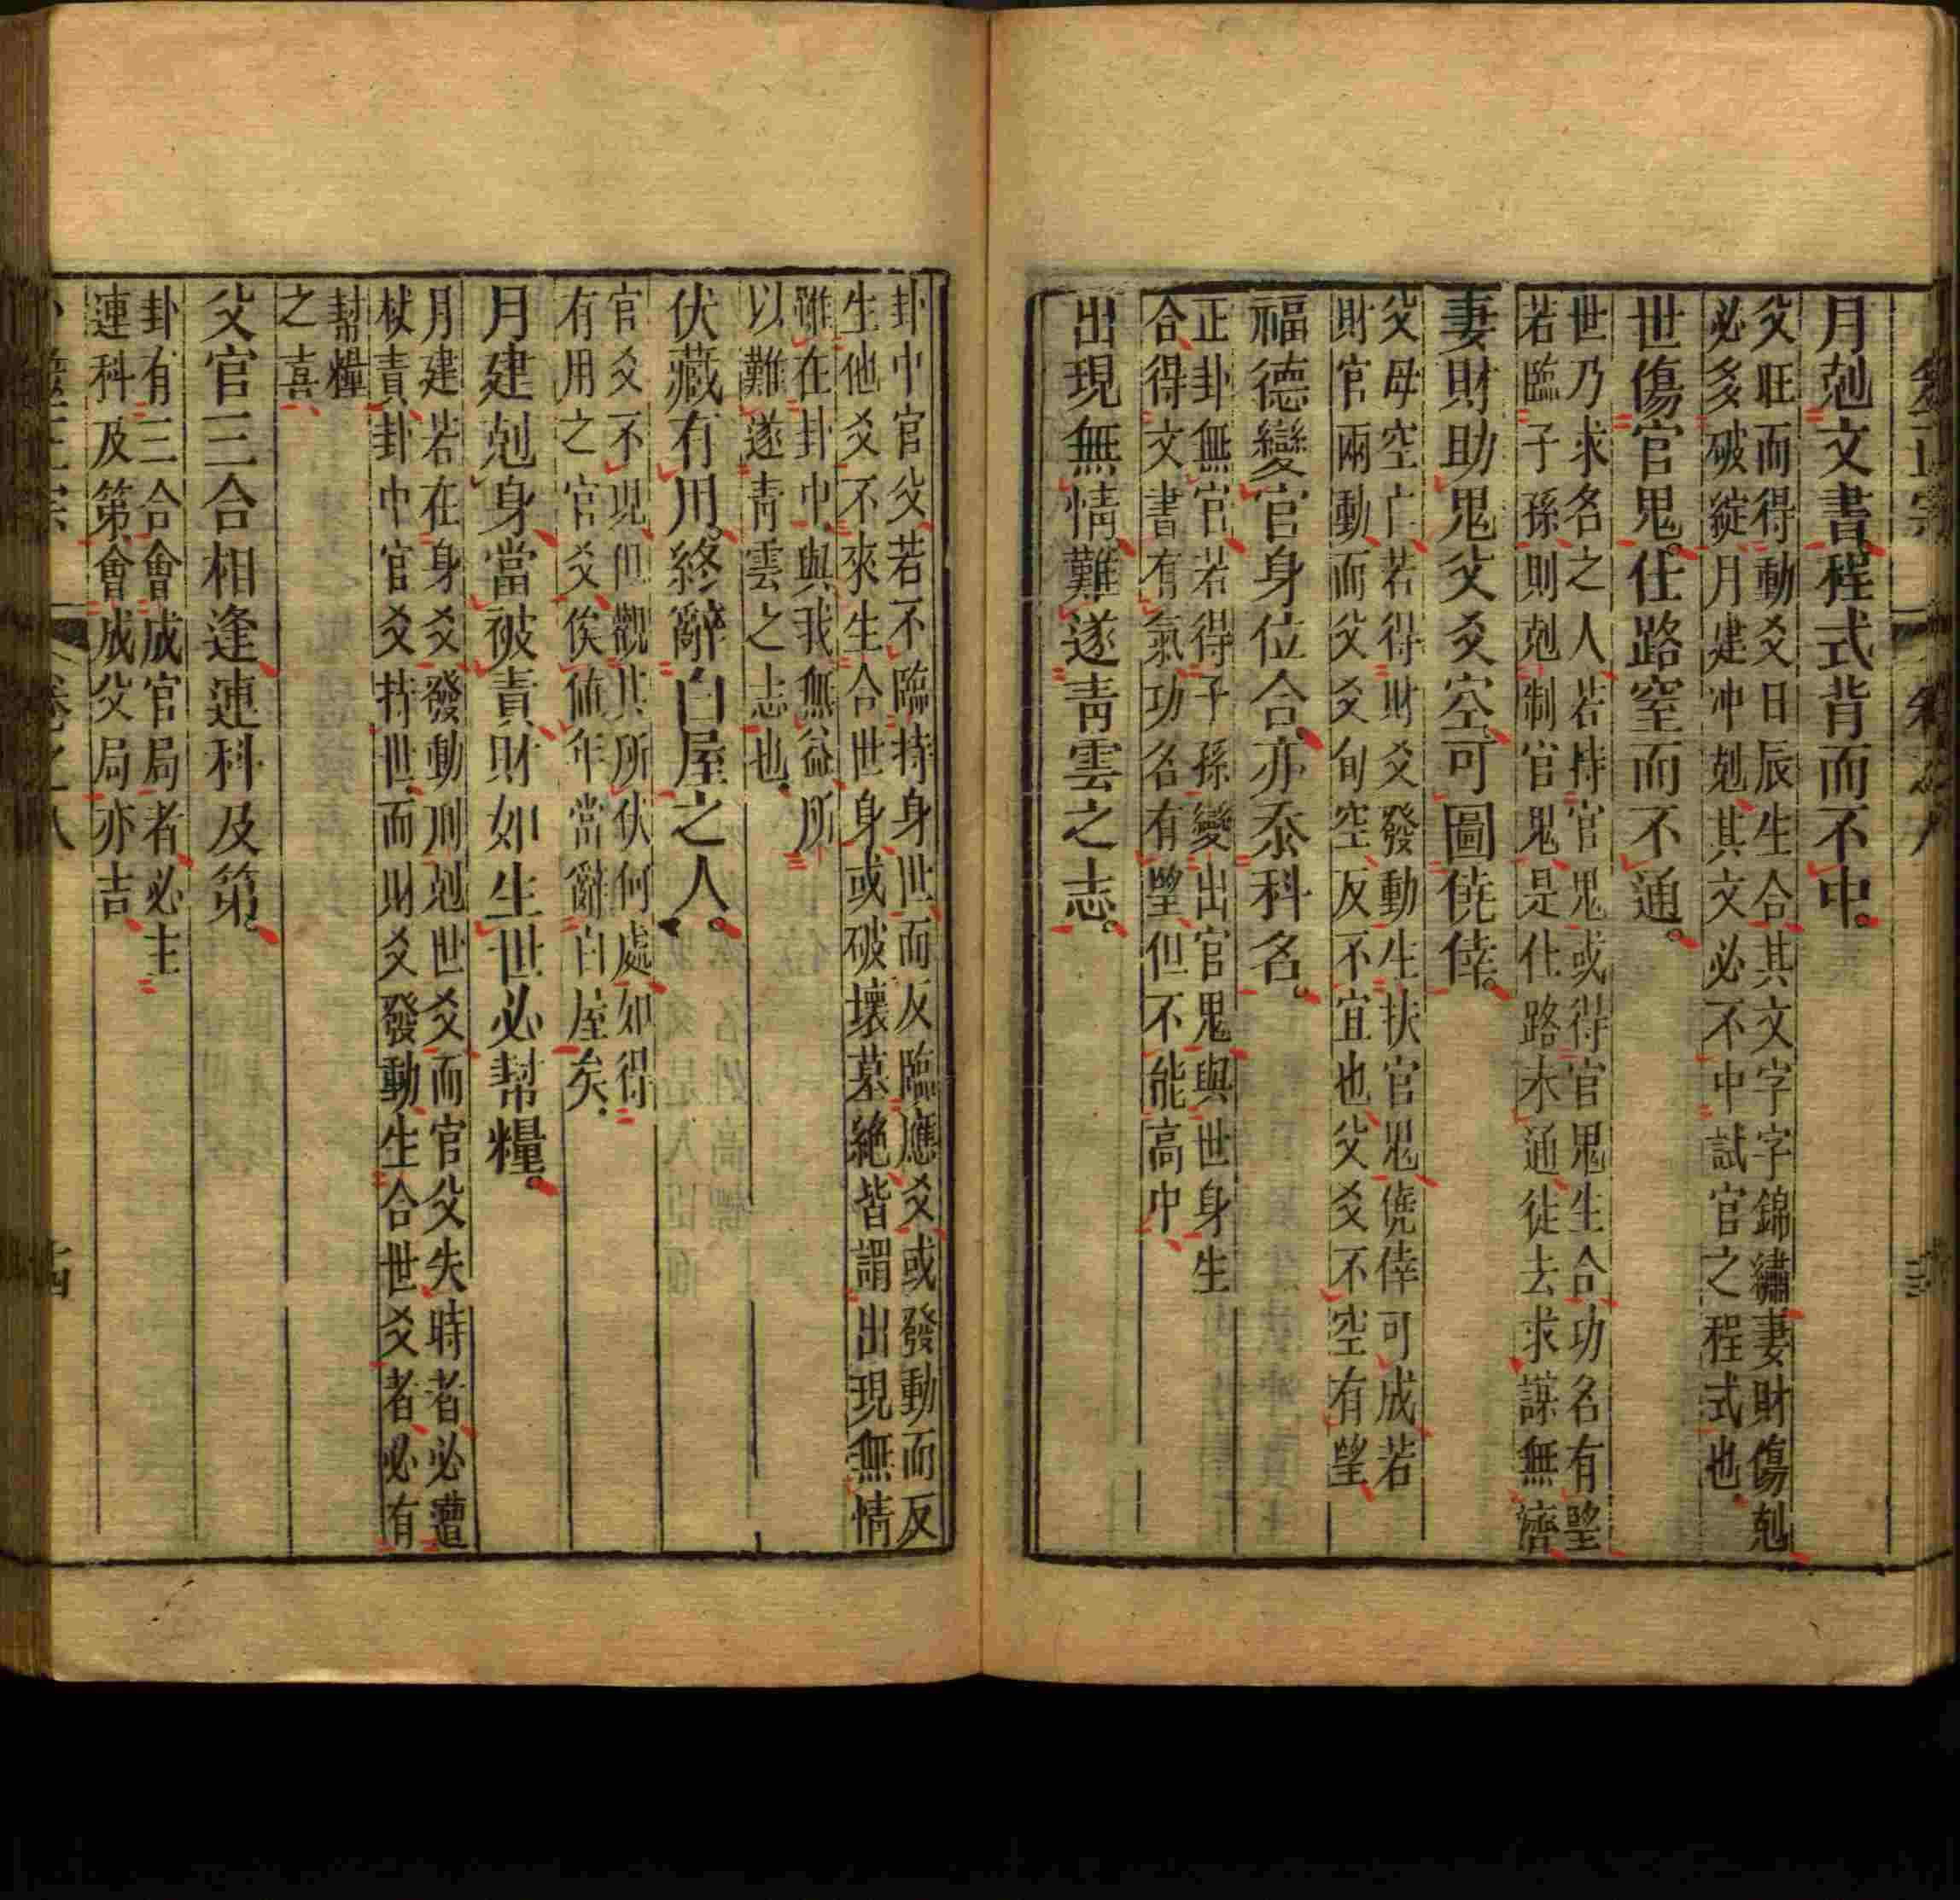 月尅文書程式背而不中。
父旺而得動爻日辰生合其文字字錦繡妻財傷尅
必多破綻月建冲尅其文必不中試官之程式也
世傷官鬼。仕路窒而不通。
世乃求名之人若持官鬼或得官鬼生合功名有望
若臨子孫則尅制官鬼是仕路不通徒去求謀無濟
妻財助鬼父爻空可圖僥倖。
父母空亡若得財爻發動生扶官鬼僥倖可成若
財官兩動而父爻旬空反不宜也父爻不空有望
福德變官身位合。亦忝科名。
正卦無官若得子孫變出官鬼與世身生
合得文書有氣功名有望但不能高中
出現無情難遂靑雲之志。
卦中官父若不臨持身世而反臨應爻或發動而反
生他爻不來生合世身或破壞墓絶皆謂出現無情
雖在卦中與我無益所
以難遂靑雲之志也
伏藏有用。終辭白屋之人。
官爻不現但觀其所伏何處如得
有用之官爻俟值年當辭白屋矣
月建尅身當被責財如生世必幇糧。
月建若在身爻發動則尅世爻而官父失時者必遭
杖責卦中官爻持世而財爻發動生合世爻者必有
幇糧
之喜
父官三合相逢連科及第。
卦有三合會成官局者必主
連科及第會成父局亦吉
卷之八